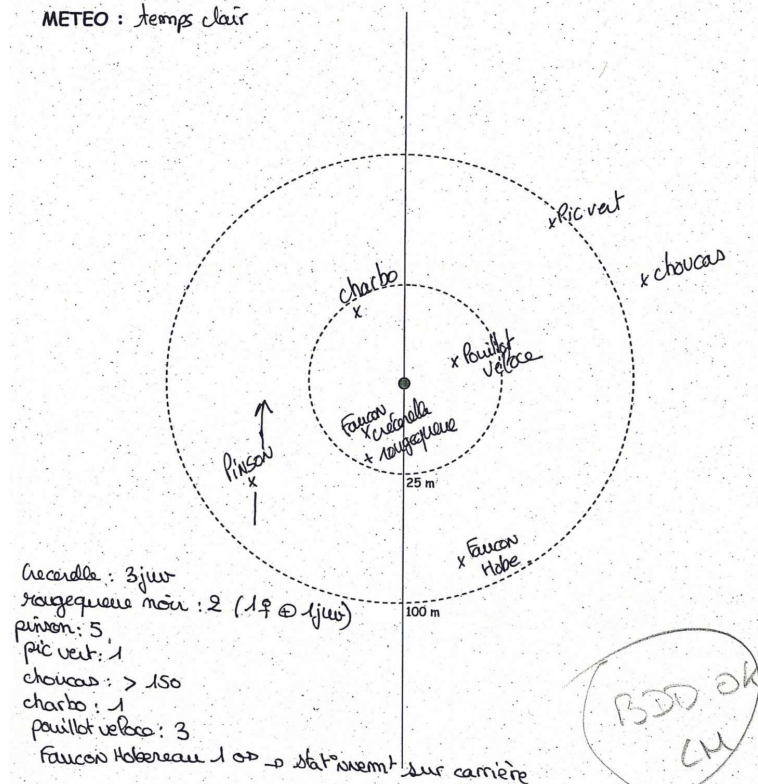 METEO : temps clair
x Pic vert
x choucas
charbo
x
x Pouillot
véloce
Faucon
x crécerelle
+ rougequeue
PINSON
x
25 m
x Faucon
Hobe.
100 m
Crecerelle : 3 juv
rougequeue noir : 2 (1♀ ⊕ 1 juv)
pinson : 5
pic vert : 1
choucas : > 150
charbo : 1
pouillot veloce : 3
Faucon Hobereau 1 → sur carrière
BDD OK
LM